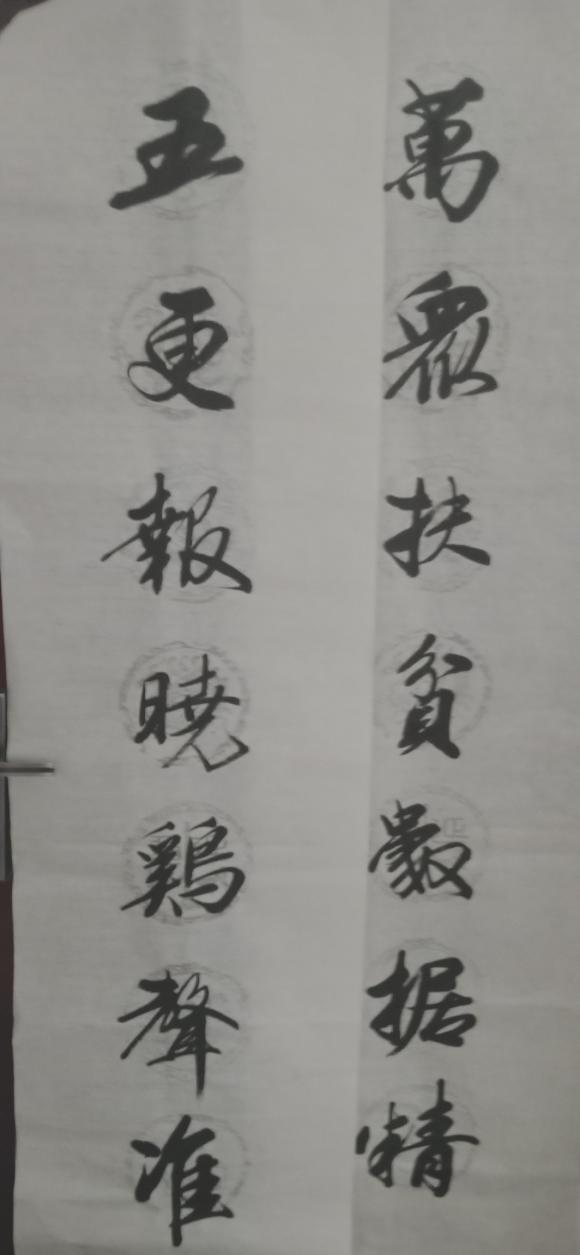 萬眾扶貧數据精
五更報曉鷄聲准